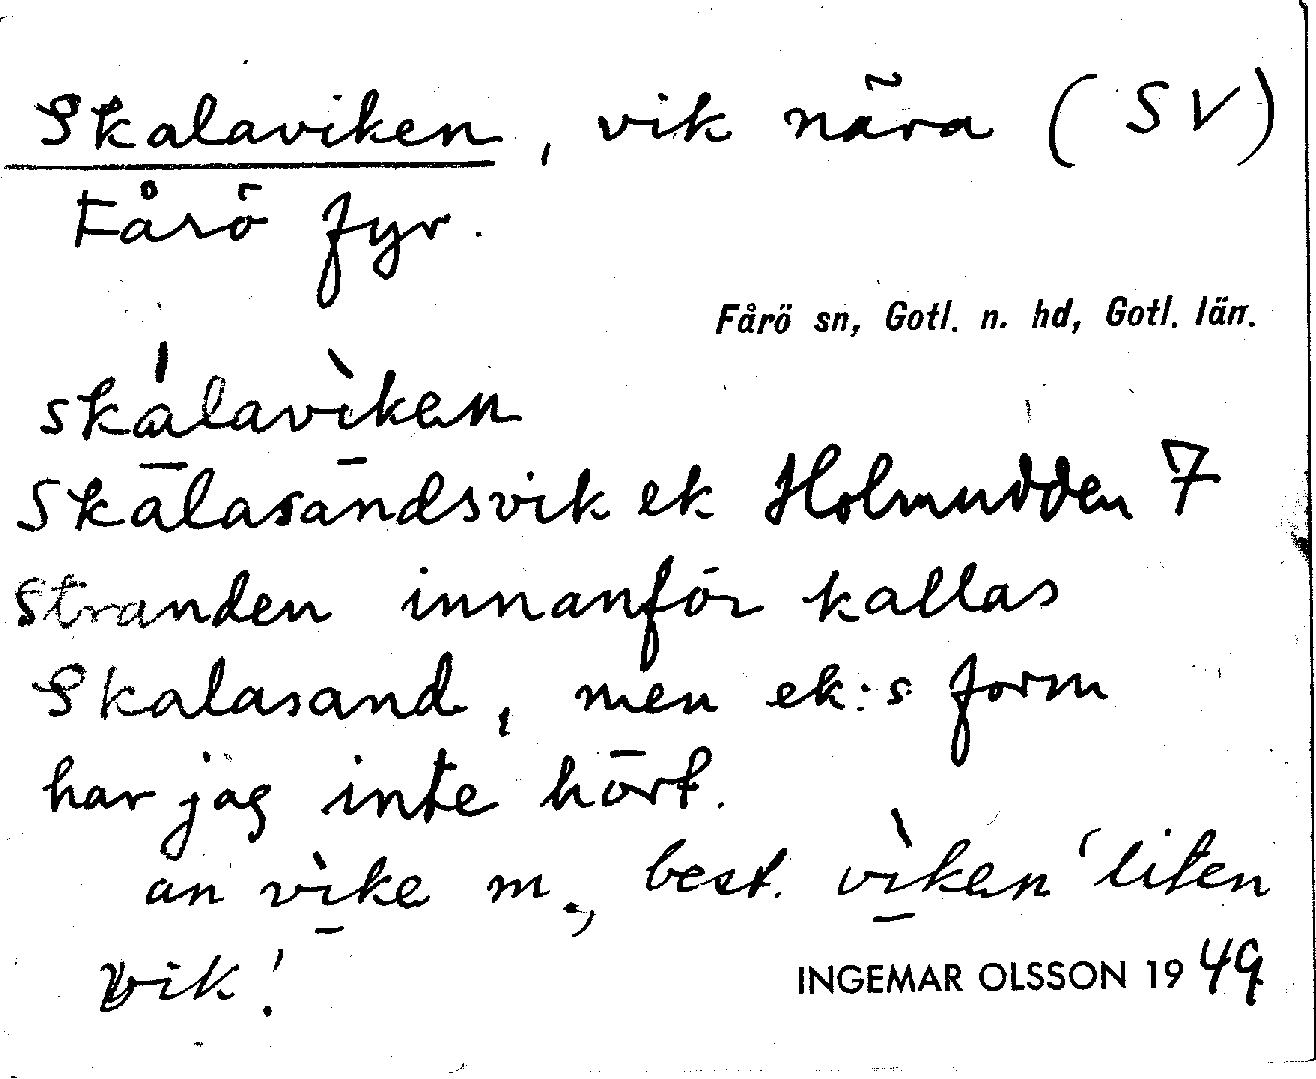 Skalaviken, vik nära (SV)
Fårö fyr.
Fårö sn, Gotl. n. hd, Gotl. län.
skálavìken
Skalasandsvik ek Holmudden 7
Stranden innanför kallas
Skalasand, men ek:s form
har jag inte hört.
an vìke m., best. vìken 'liten
vik'.
INGEMAR OLSSON 1949